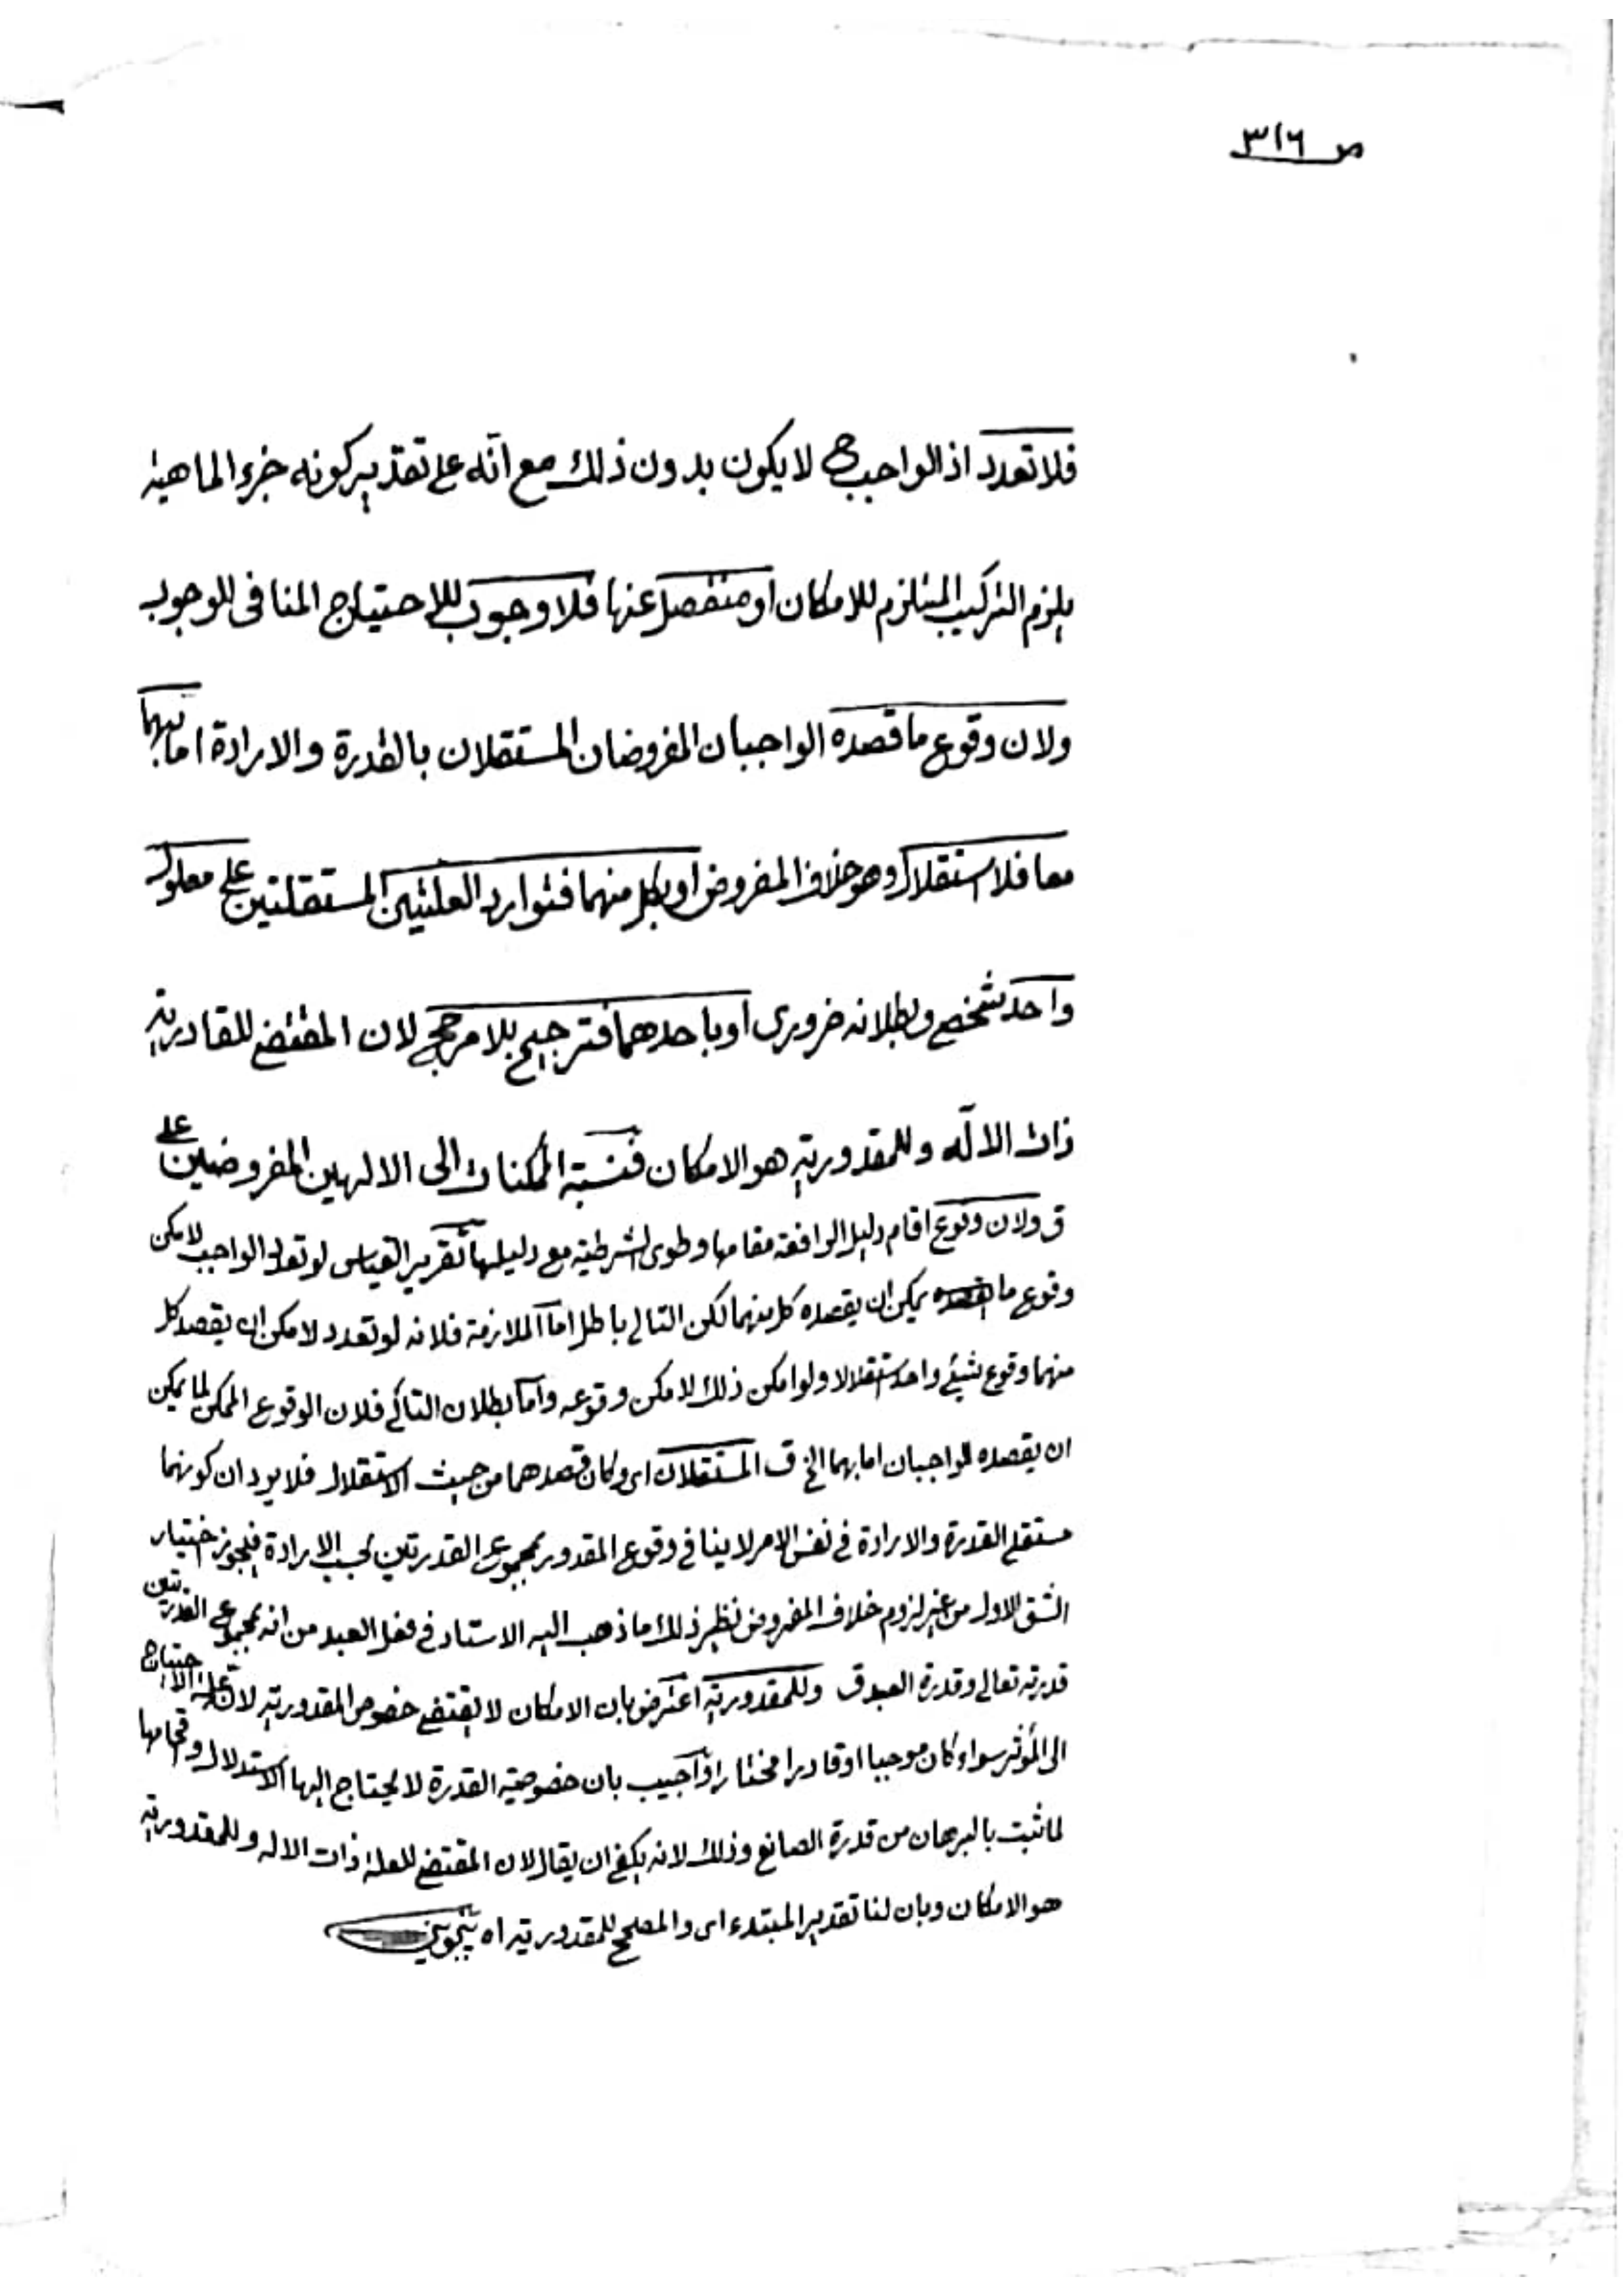 ص ٣١٦
فلا تعدد اذ الواجب ح لا يكون بدون ذلك مع انّه على تقدير كونه جزء الماهية
يلزم التركيب المستلزم للامكان او منفصل عنها فلا وجوب للاحتياج المنافى للوجوب
ولان وقوع ما قصده الواجبان المفروضان المستقلان بالقدرة والارادة اما بهما
معا فلا استقلال وهو خلاف المفروض او بكل منهما فتوارد العلتين المستقلتين على معلول
واحد شخصى وبطلانه ضرورى او باحدهما فترجيح بلا مرجح لان المقتضى للقادرية
ذات الالٓه وللمقدورية هو الامكان فنسبة الممكنات الى الالهين المفروضين على
ق ولان وقوع اقام دليل الرافعة مقامها وطوى الشرطية مع دليلها تقرير القياس لو تعدد الواجب لامكن
وقوع ما يمكن ان يقصده كل منهما لكن التالى باطل اما الملازمة فلانه لو تعدد لامكن ان يقصد كل
منهما وقوع شيئ واحد استقلالا ولو امكن ذلك لامكن وقوعه واما بطلان التالى فلان الوقوع الممكن لما يمكن
ان يقصده الواجبان اما بهما الخ ق المستقلان اى وكان قصدهما من حيث الاستقلال فلا يرد ان كونهما
مستقلى القدرة والارادة فى نفس الامر لا ينافى وقوع المقدور بمجموع القدرتين بحسب الارادة فيجوز اختيار
الشق الاول من غير لزوم خلاف المفروض نظير ذلك ما ذهب اليه الاستاد فى فعل العبد من انه بمجموع القدرتين
قدرته تعالى وقدرة العبد ق وللمقدورية اعترض بان الامكان لا يقتضى خصوص المقدورية لان علة الاحتياج
الى المؤثر سواء كان موجبا او قادرا مختارا واجيب بان خصوصية القدرة لا يحتاج اليها الاستدلال
لما ثبت بالبرهان من قدرة الصانع وذلك لانه يكفى ان يقال لان المقتضى للعلة ذات الاله وللمقدورية
هو الامكان وبان لنا تقدير المبتدء اى والمصحح للمقدورية اه